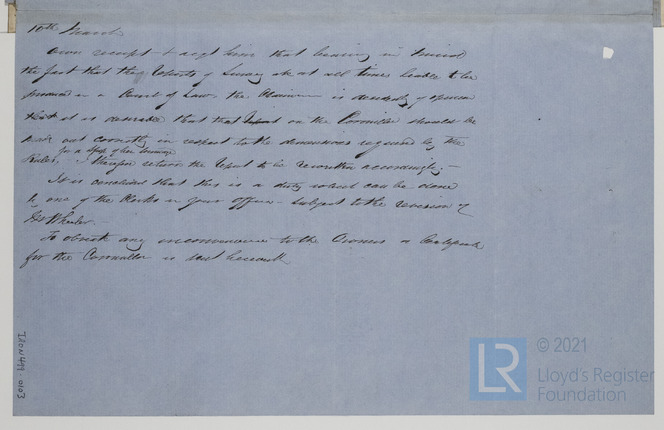 10th March
Own receipt & acqt him that bearing in mind
the fact that the Reports of Survey are at all times liable to be
produced in a Court of Law, the Chairman is decidedly of opinion
that it is desirable that the Report on the Cornuvia should be
made out correctly in respect to the dimensions required by the
for a Ship of her tonnage
Rules, I therefore return the Report to be rewritten accordingly. –
It is considered that this is a duty which can be done
by one of the Clerks in your office – subject to the revision of
Mr Wheeler
To obviate any inconvenience to the Owners a Certificate
for the is sent herewith
IRON449-0103
LR
© 2021
Lloyd's Register
Foundation